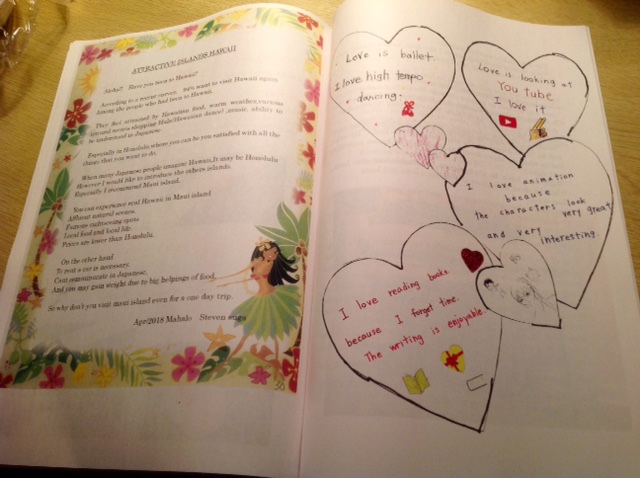 ATTRACTIVE ISLANDS HAWAII
Aloha! Have you been to Hawaii?
According to a recent survey, want to visit Hawaii again
Among the people who had been to Hawaii.
They feel attracted by Hawaiian food, warm weather, various
natural scenes, shopping Hula(Hawaiian dance) ,music, ability to
be understand in Japanese.
Especially in Honolulu, where you can be you satisfied with all the
things that you want to do.
When many Japanese people imagine Hawaii, It may be Honolulu
However I would like to introduce the others islands.
Especially I recommend Maui island.
You can experience real Hawaii in Maui island
Affluent natural scenes.
Famous surfing spots
Local food and local life.
Prices are lower than Honolulu.
On the other hand
To rent a car is necessary.
Cant communicate in Japanese,
And you may gain weight due to big helpings of food.
So why don't you visit maui island even for a one day trip.
Apr/2018 Mahalo Steven suga
50
Love is ballet.
I love high tempo
dancing.
Love is looking at
You tube
I love it
I love animation
because
the characters look very great
and very interesting.
I love reading books
because I forget time.
The writing is enjoyable.